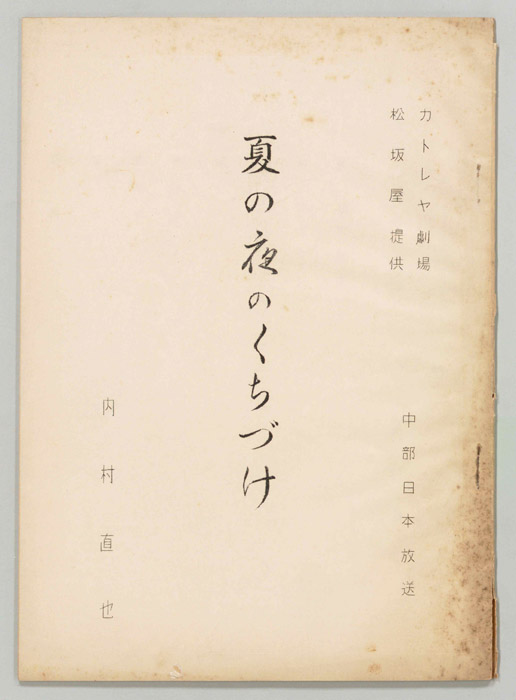 カトレヤ劇場
松坂屋 提供
中部日本放送
夏の夜のくちづけ
内村直也